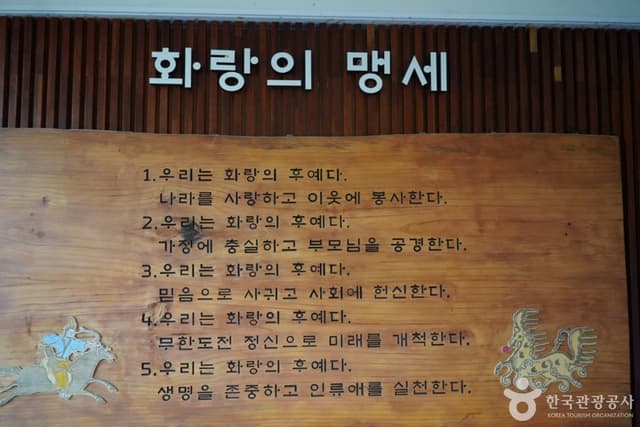 화랑의 맹세
1.우리는 화랑의 후예다.
나라를 사랑하고 이웃에 봉사한다.
2.우리는 화랑의 후예다.
가정에 충실하고 부모님을 공경한다.
3.우리는 화랑의 후예다.
믿음으로 사귀고 사회에 헌신한다.
4.우리는 화랑의 후예다.
무한도전 정신으로 미래를 개척한다.
5.우리는 화랑의 후예다.
생명을 존중하고 인류애를 실천한다.
한국관광공사
KOREA TOURISM ORGANIZATION